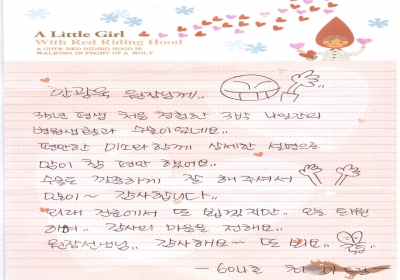 A Little Girl
With Red Riding Hood
A CUTE RED RIDING HOOD IS
WALKING IN FRONT OF A WOLF
안광욱 원장님께..
35년 평생 처음 경험한 3박 4일간의
병원생활과 수술이었네요..
편안한 미소와 함께 상세한 설명으로
맘이 참 편안 했어요..
수술도 깔끔하게 잘 해주셔서
맘이~ 감사합니다..
외래 진료에서 또 뵙겠지만.. 오늘 퇴원
하며.. 감사의 마음을 전해요..
원장선생님.. 감사해요~ 또 뵈요..
- 604호